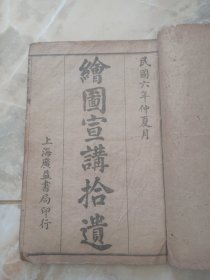 民國六年仲夏月
繪圖宣講拾遺
上海廣益書局印行